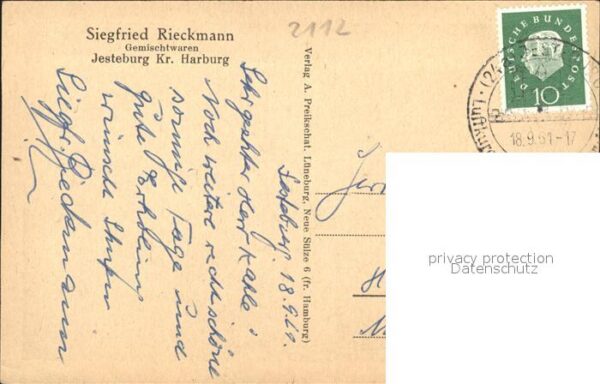 Siegfried Rieckmann
Gemischtwaren
Jesteburg Kr. Harburg
2112
Verlag A. Preikschat, Lüneburg, Neue Sülze 6 (fr. Hamburg)
DEUTSCHE BUNDESPOST
10
(24
18.9.61-17
Jesteburg, 18.9.61.
Sehr geehrter Herr Kahle!
Noch weitere recht schöne
sonnige Tage und
gute Erholung
wünscht Ihnen
Siegfr. Rieckmann
privacy protection
Datenschutz